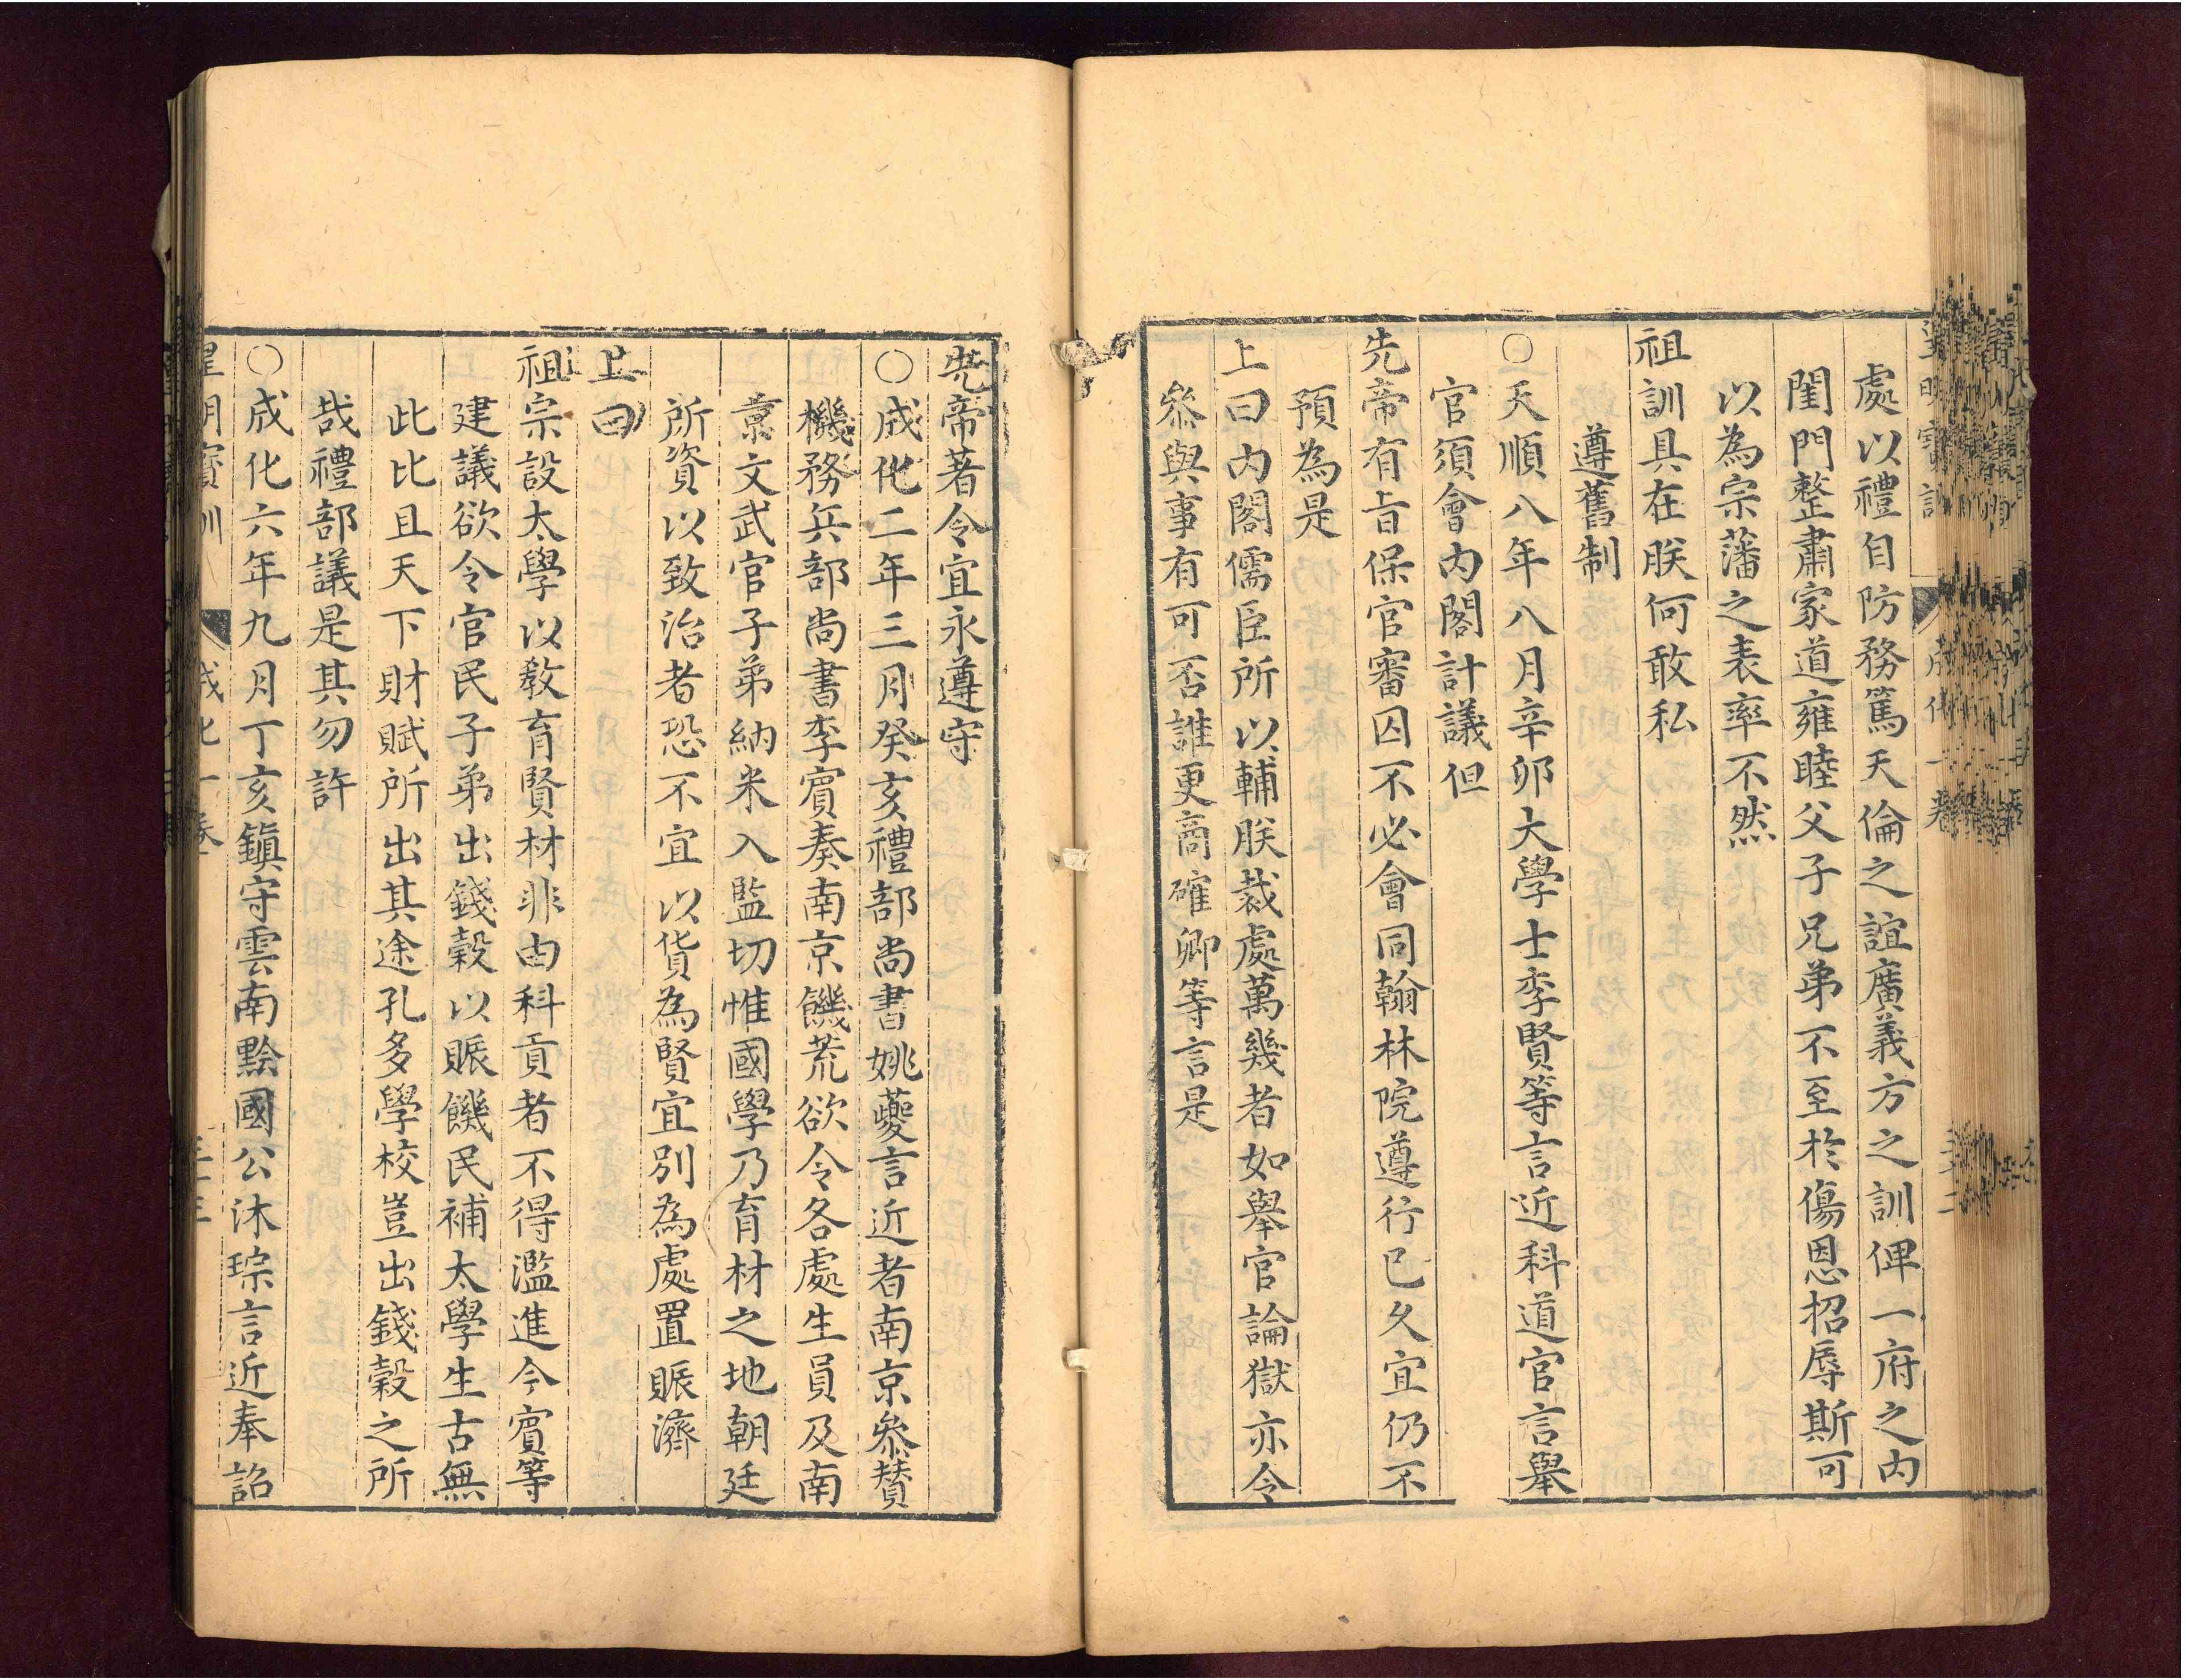 處以禮自防務篤天倫之誼廣義方之訓俾一府之內
閨門整肅家道雍睦父子兄弟不至於傷恩招辱斯可
以為宗藩之表率不然
祖訓具在朕何敢私
遵舊制
○天順八年八月辛卯大學士李賢等言近科道官言舉
官須會內閣計議但
先帝有旨保官審囚不必會同翰林院遵行已久宜仍不
預為是
上曰內閣儒臣所以輔朕裁處萬幾者如舉官論獄亦令
叅與事有可否誰更商確卿等言是
先帝著令宜永遵守
○成化二年三月癸亥禮部尚書姚夔言近者南京叅賛
機務兵部尚書李賓奏南京饑荒欲令各處生員及南
京文武官子弟納米入監切惟國學乃育材之地朝廷
所資以致治者恐不宜以貨為賢宜別為處置賑濟
上曰
祖宗設太學以教育賢材非由科貢者不得濫進今賓等
建議欲令官民子弟出錢穀以賑饑民補太學生古無
此比且天下財賦所出其途孔多學校豈出錢穀之所
哉禮部議是其勿許
○成化六年九月丁亥鎮守雲南黔國公沐琮言近奉詔
皇明寶訓 成化一卷 三十三